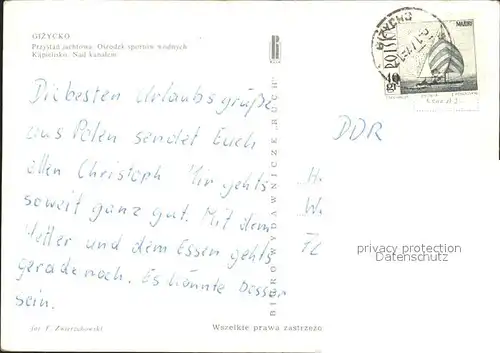 GIŻYCKO
Przystań jachtowa. Ośrodek sportów wodnych
Kąpielisko. Nad kanałem
Die besten Urlaubsgrüße
aus Polen sendet Euch
allen Christoph Mir gehts
soweit ganz gut. Mit dem
Wetter und dem Essen gehts
gerade noch. Es könnte besser
sein.
fot. T. Zwierzchowski
Wszelkie prawa zastrzeżo
BIURO WYDAWNICZE „RUCH"
GIŻYCKO
POLSKA
40 gr
DDR
privacy protection
Datenschutz